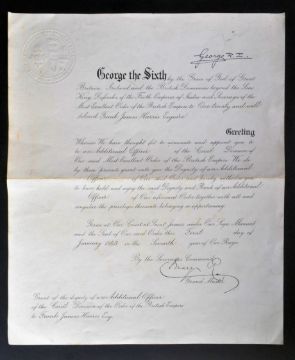 George R.I.
George the Sixth by the Grace of God of Great
Britain, Ireland and the British Dominions beyond the Seas
King, Defender of the Faith, Emperor of India and Sovereign of the
Most Excellent Order of the British Empire to Our trusty and well
beloved Frank James Harris Esquire
Greeting
Whereas We have thought fit to nominate and appoint you to
be an Additional Officer of the Civil Division of
Our said Most Excellent Order of the British Empire We do
by these presents grant unto you the Dignity of an Additional
Officer of Our said Order and hereby authorise you
to have hold and enjoy the said Dignity and Rank of an Additional
Officer of Our aforesaid Order together with all and
singular the privileges thereunto belonging or appertaining.
Given at Our Court at Saint James's under Our Sign Manual
and the Seal of Our said Order this First day of
January 1943 in the Seventh year of Our Reign.
By the Sovereign's Command,
Mary R
Grand Master.
Grant of the dignity of an Additional Officer
of the Civil Division of the Order of the British Empire
to Frank James Harris Esq.